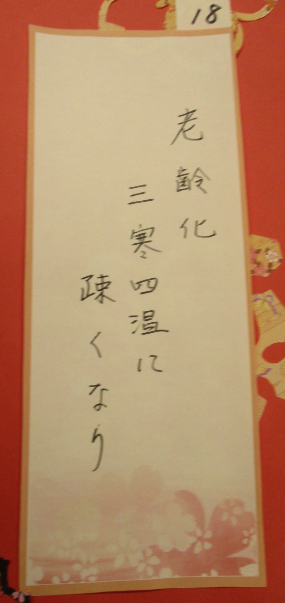 18
老齢化
三寒四温に
疎くなり